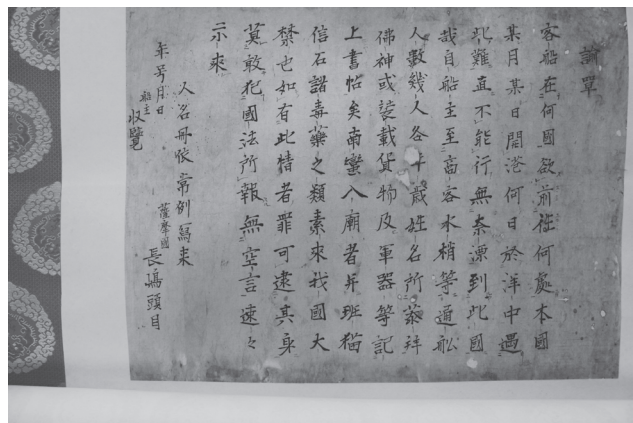 諭單
客船在何國欲前往何處本國
某月某日開港何日於洋中遇
此難直不能行無奈漂到此國
哉自船主至商客水梢等通船
人數幾人各年歲姓名所蔡拜
佛神或裝載貨物及軍器等記
上書帖矣南蠻入廟者并班猫
信石諸毒藥之類素來我國大
禁也如有此情者罪可逮其身
莫敢犯國法所報無空言速々
示来
人名冊依常例寫来
薩摩國
長嶌頭目
年号月日
船主
收覽